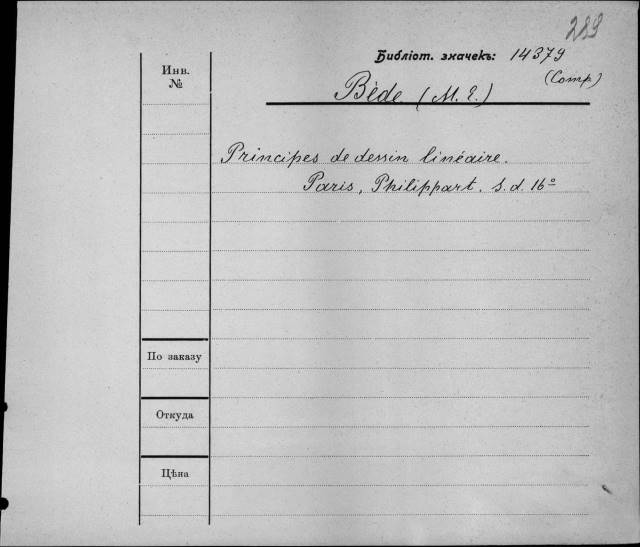 289
Библіот. значекъ: 14379
(Comp.)
Инв.
№
Bède (M. E.)
Principes de dessin linéaire.
Paris, Philippart. s. d. 16º
По заказу
Откуда
Цѣна